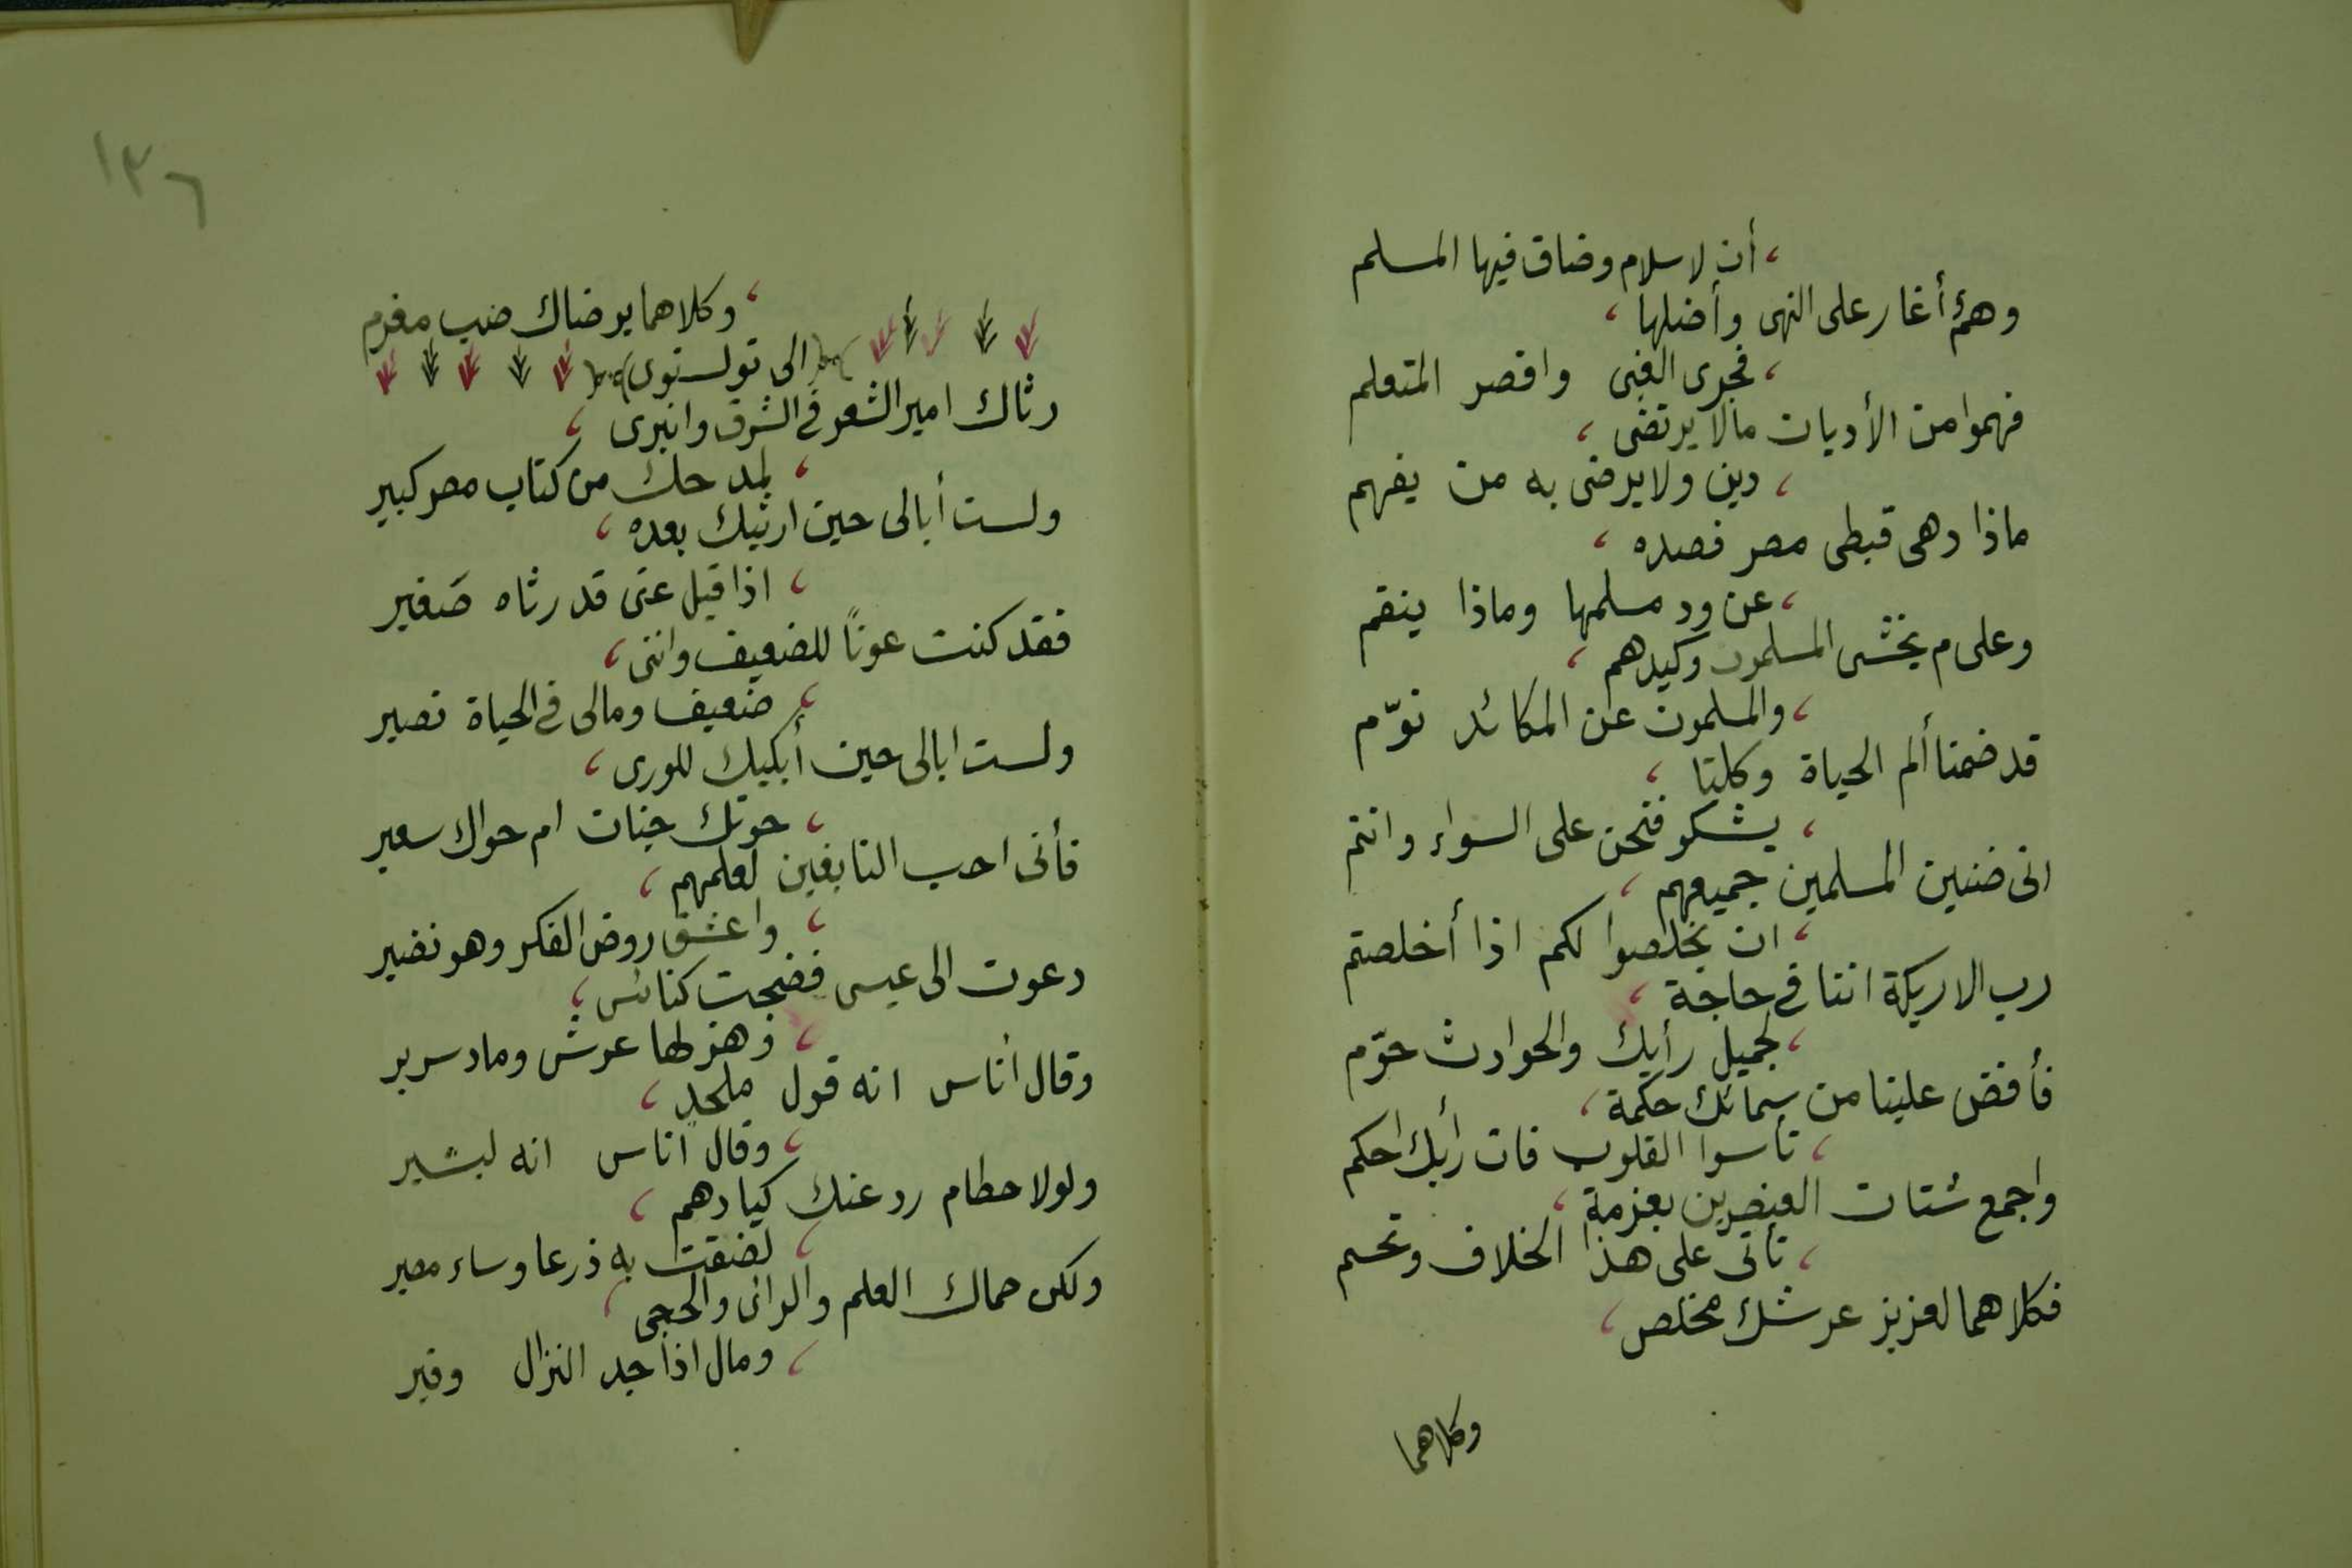 أن لاسلام وضاق فيها المسلم
وهمٌ أغار على النهى وأضلها
فجرى الغبى واقصر المتعلم
فهموا من الأديان مالا يرتضى
دين ولا يرضى به من يفهم
ماذا دهى قبطى مصر فصده
عن ود مسلمها وماذا ينقم
وعلى م يخشى المسلمون وكيدهم
والمسلمون عن المكائد نوّم
قد ضمنا ألم الحياة وكلنا
يشكو فنحن على السواء وانتم
انى ضنين المسلمين جميعهم
ان يخلصوا لكم اذا أخلصتم
رب الاريكة اننا فى حاجة
لجميل رأيك والحوادث حوّم
فأفض علينا من سمائك حكمة
تأسوا القلوب فان رأيك احكم
واجمع شتات العنصرين بعزمة
تأتى على هذا الخلاف وتحسم
فكلاهما لعزيز عرشك مخلص
وكلاهما
١٣٦
وكلاهما يرضاك صب مغرم
الى تولستوى
رثاك امير الشعر فى الشرق وانبرى
لمدحك من كتاب مصر كبير
ولست أبالى حين ارثيك بعده
اذا قيل عنى قد رثاه صَغير
فقد كنت عونًا للضعيف واننى
ضعيف ومالى فى الحياة نصير
ولست ابالى حين أبكيك للورى
حوتك جنات ام حواك سعير
فأنى احب النابغين لعلمهم
واعشق روض الفكر وهو نضير
دعوت الى عيسى فضجت كنائس
وهز لها عرش وماد سرير
وقال أناس انه قول ملحد
وقال اناس انه لبشير
ولولا حطام رد عنك كيادهم
لضقت به ذرعا وساء مصير
ولكن حماك العلم والرائ والحجى
ومال اذا جد النزال وفير